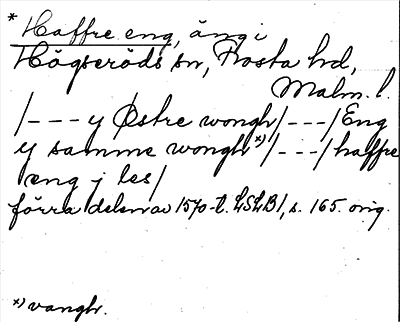 * Haffre eng, äng i
Högseröds sn, Frosta hd,
Malm. l.
/--- y Østre wongh/---/Eng
y samme wongh *)/---/haffre
eng j les/
förra delen av 1570-t. LSLB1, s. 165. orig.
*) vangh.